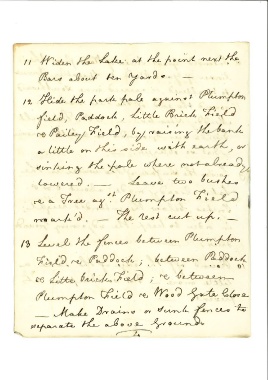 11 Widen the Lake, at the point next the
Bars about ten Yards. —
12 Hide the park pale against Plumpton
field, Paddock, Little Brick Field
& Pailey Field, by raising the bank
a little on this side with earth, or
sinking the pale where not already
lowered. — Leave two bushes
& a Tree agst Plumpton Field
mark'd. — The rest cut up. —
13 Level the fences between Plumpton
Field & Paddock; between Paddock
& Little brick Field; & between
Plumpton Field & Wood Gate Close
— Make Drains or sunk fences to
separate the above Grounds